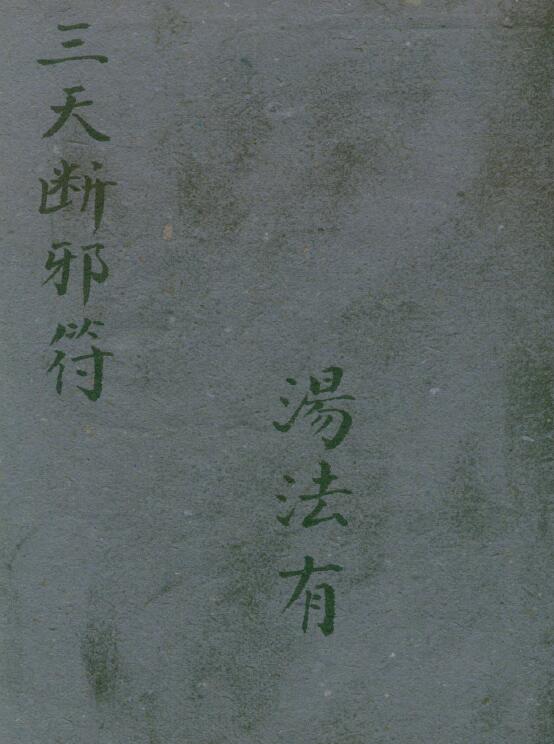 三天断邪符
湯法有